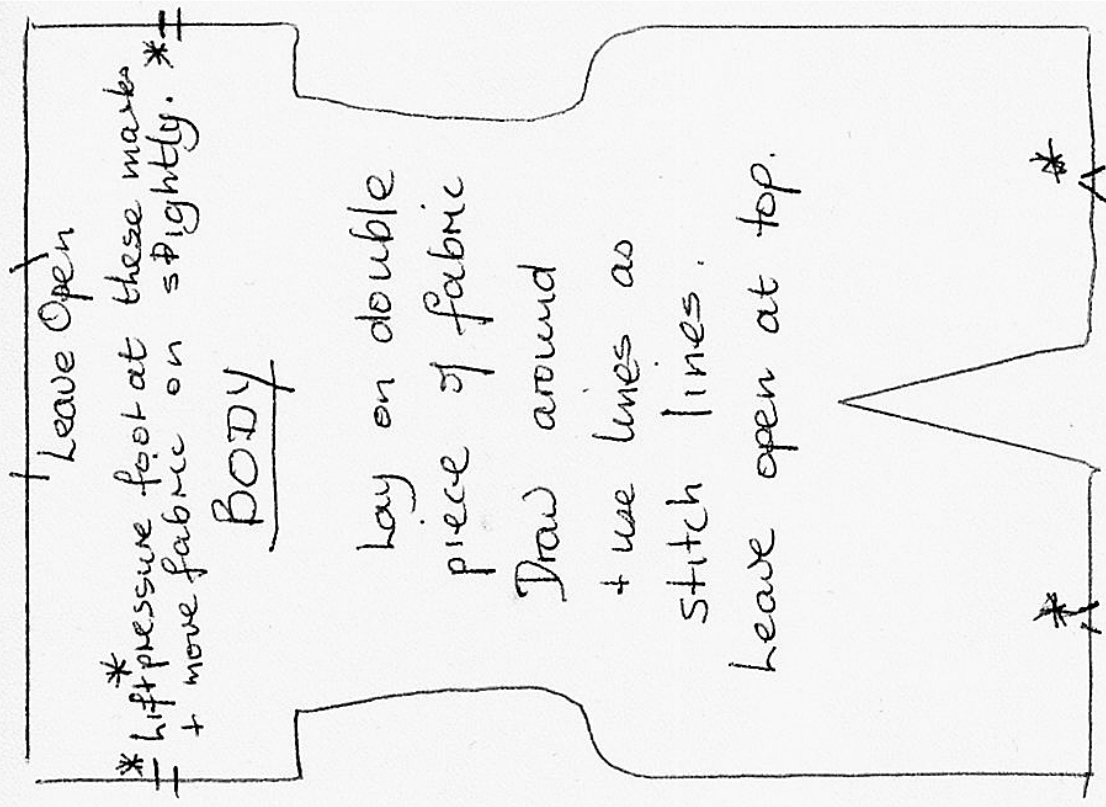 Leave Open
* Lift pressure foot at these marks
+ move fabric on slightly. *
BODY
Lay on double
piece of fabric
Draw around
+ use lines as
stitch lines.
Leave open at top.